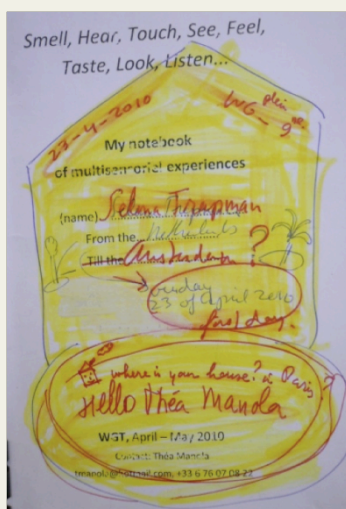 Smell, Hear, Touch, See, Feel,
Taste, Look, Listen...
23-4-2010
WG-plein
My notebook
of multisensorial experiences
(name)
From the
Till the Amsterdam ?
23 of April 2010
first day.
where is your house? in Paris?
Hello Théa Manola
WGT, April – May 2010
Contact: Théa Manola
tmanola@hotmail.com, +33 6 76 07 08 22